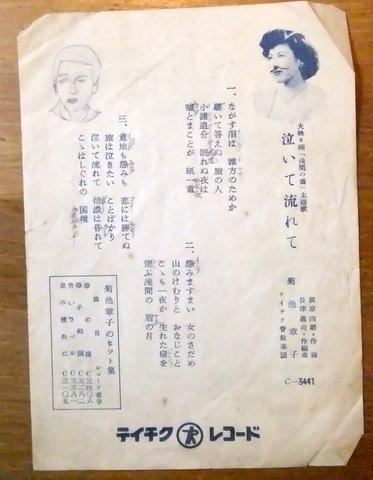 大映々画「浅間の鴉」主題歌
泣いて流れて
萩原四朗・作詩
長津義司・作編曲
菊池章子
テイチク管絃楽団
C—3441
一、ながす涙は 誰方のためか
聴いて答えぬ 旅の人
小諸追分 眠れぬ夜は
嘘とまことが 紙一重
二、怨みますまい 女のさだめ
山のけむりと おなじこと
こゝも一夜か 生れた宿を
偲ぶ浅間の 眉の月
三、意地も怨みも 恋には勝てぬ
旅は泣きたい ことばかり
泣いて流れて 信濃は昏れて
こゝはしぐれの 国境
菊池章子のヒット集
曲目 レコード番号
母の C三四〇六
星の流れに C三一〇五
テイチク レコード